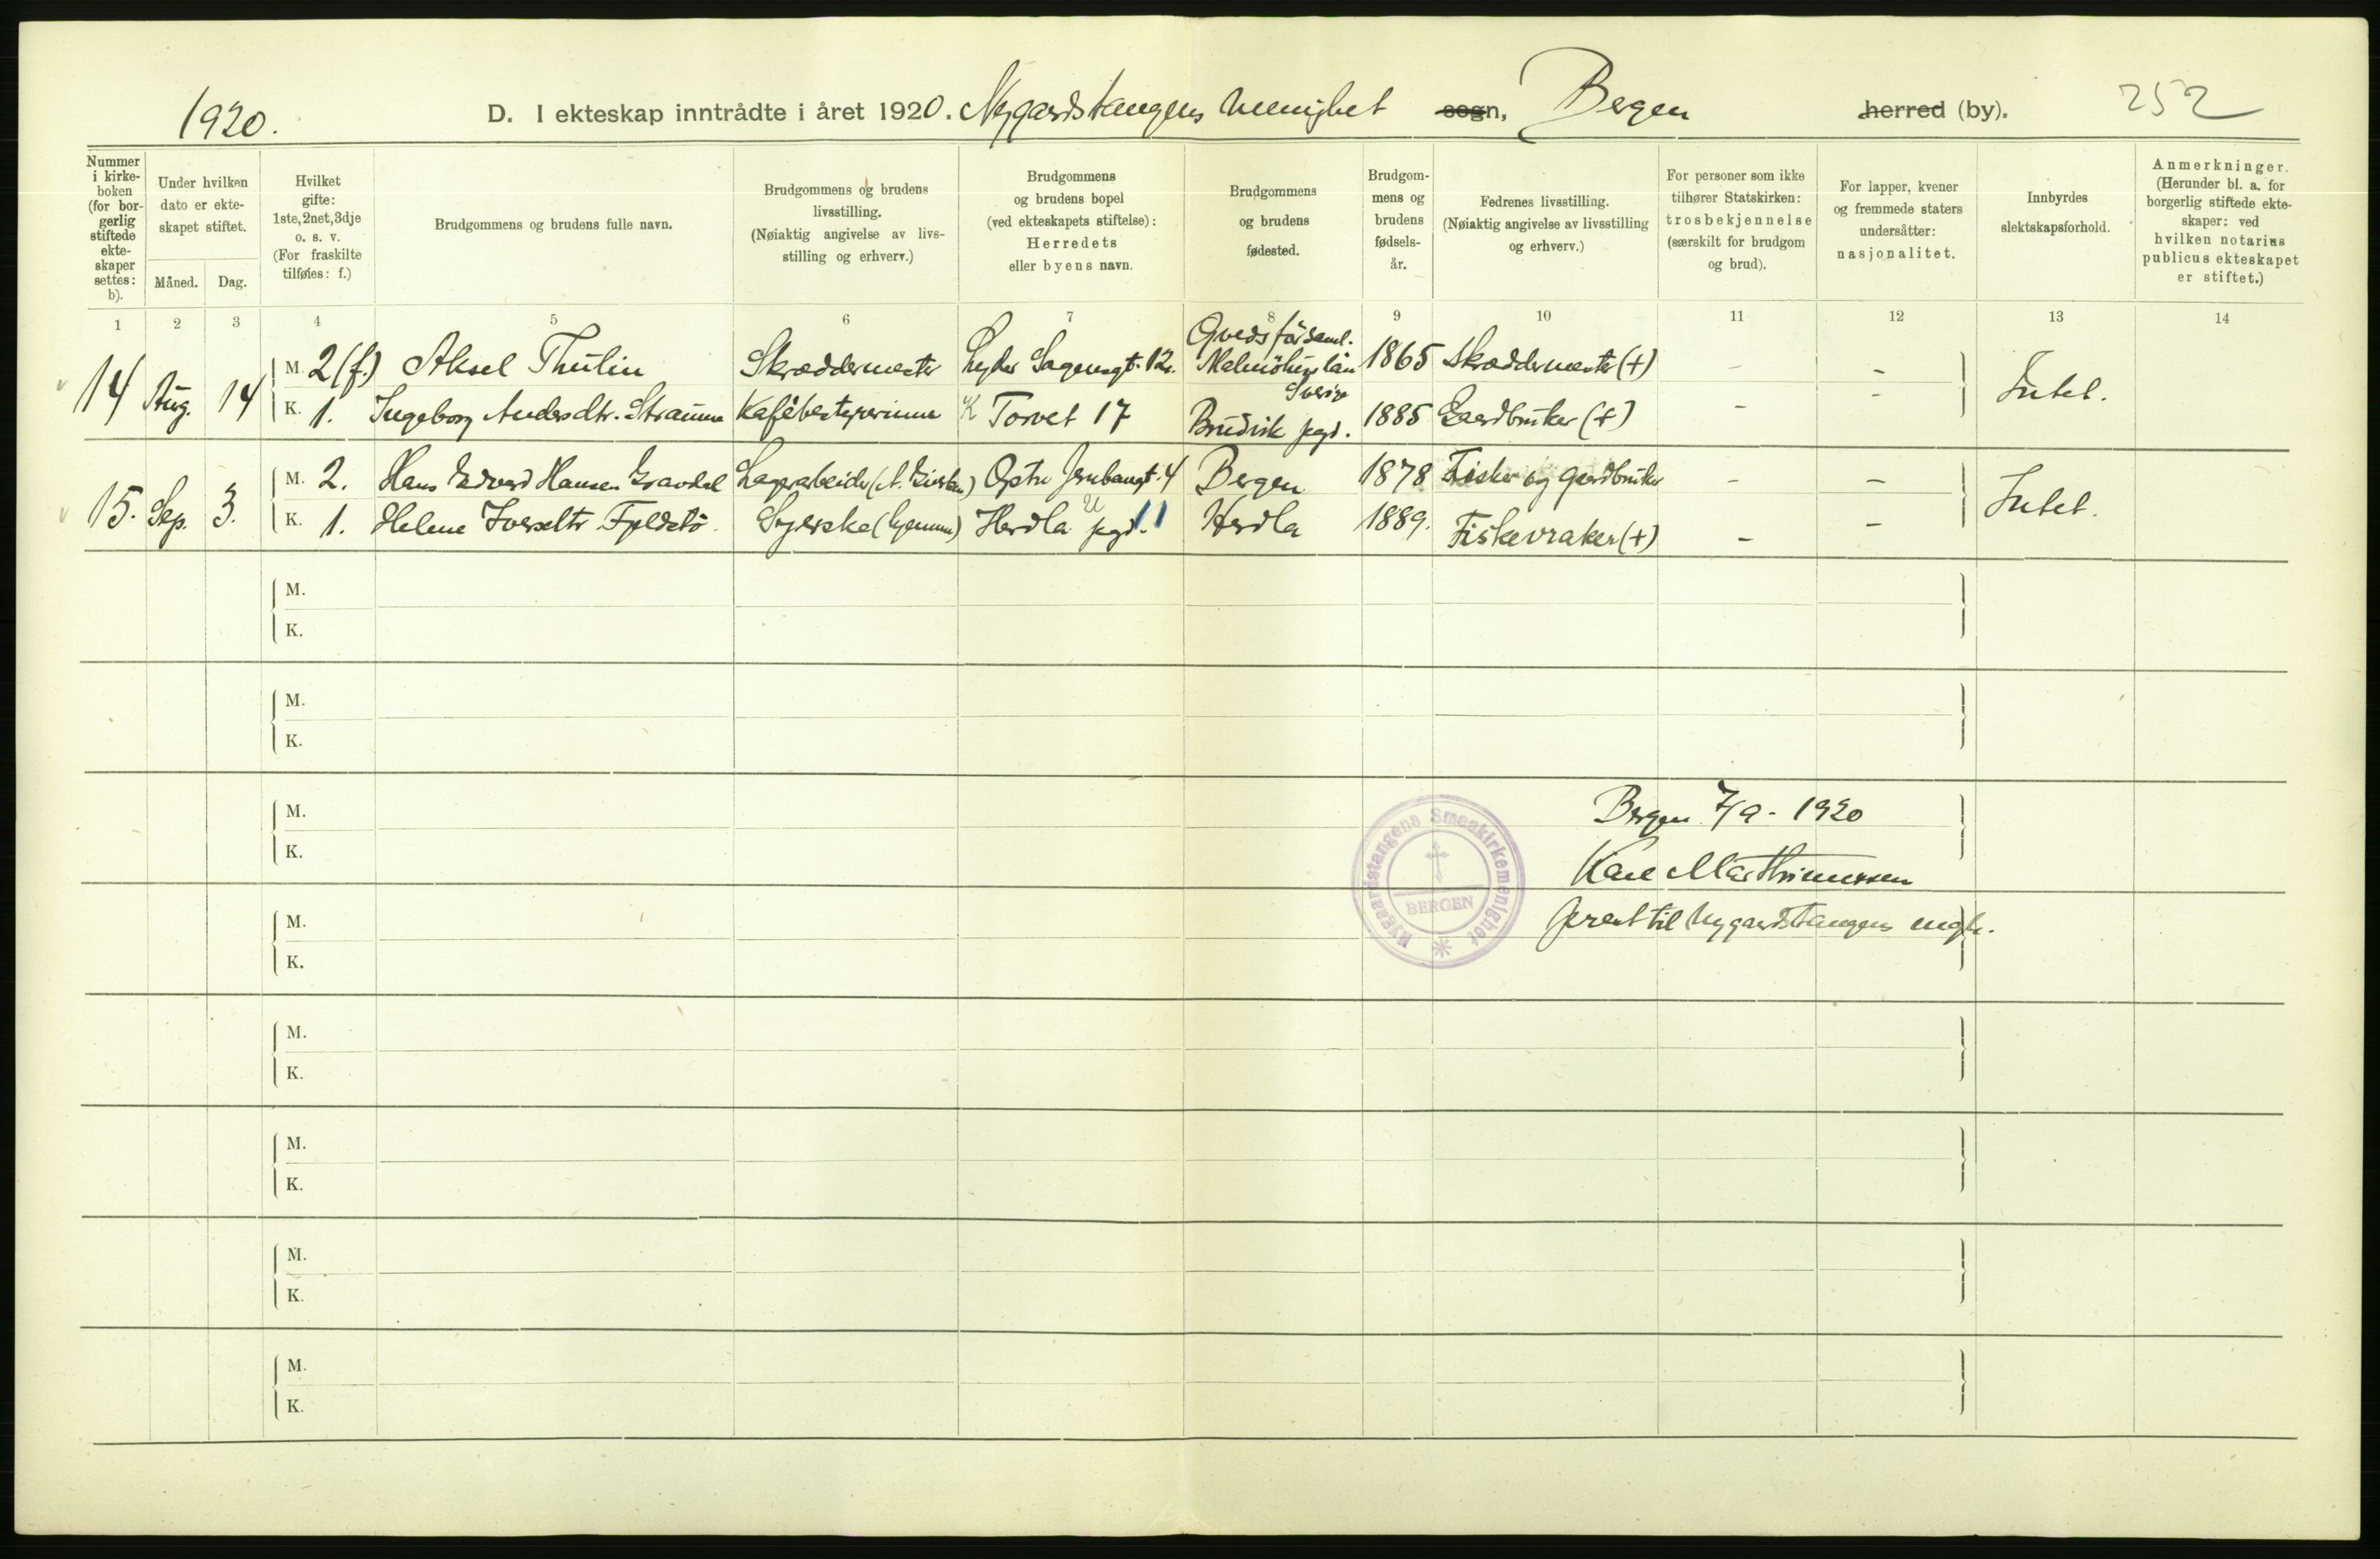 1920.
D. I ekteskap inntrådte i året 1920. Nygaardstangens menighet sogn, Bergen herred (by).
252
Nummer i kirke- boken (for bor- gerlig stiftede ekte- skaper settes: b).
Under hvilken dato er ekte- skapet stiftet.
Måned. Dag.
Hvilket gifte: 1ste, 2net, 3dje o. s. v. (For fraskilte tilføies: f.)
Brudgommens og brudens fulle navn.
Brudgommens og brudens livsstilling. (Nøiaktig angivelse av livs- stilling og erhverv.)
Brudgommens og brudens bopel (ved ekteskapets stiftelse): Herredets eller byens navn.
Brudgommens og brudens fødested.
Brudgom- mens og brudens fødsels- år.
Fedrenes livsstilling. (Nøiaktig angivelse av livsstilling og erhverv.)
For personer som ikke tilhører Statskirken: trosbekjennelse (særskilt for brudgom og brud).
For lapper, kvener og fremmede staters undersåtter: nasjonalitet.
Innbyrdes slektskapsforhold.
Anmerkninger. (Herunder bl. a. for borgerlig stiftede ekte- skaper: ved hvilken notarius publicus ekteskapet er stiftet.)
1 2 3 4 5 6 7 8 9 10 11 12 13 14
14 Aug. 14 M. 2(f.) Aksel Thulin Skræddermester Lyder Sagensgt. 12 Malmöhus län Sverige 1865 Skræddermester (+) - - Intet.
K. 1. Ingeborg Andersdtr. Straume K Torvet 17 Brudvik pgd. 1885 Gaardbruker (+) - -
15. Sep. 3. M. 2. Hans Edvard Hansen Gravdal Lagerarbeider Bergen 1878 Fisker og gaardbruker - - Intet.
K. 1. Helene Iversdtr. Fjeldstö. Syerske (hjemme) Herdla pgd. U 11 Herdla 1889. Fiskevraker (+) - -
M.
K.
M.
K.
M.
K.
Bergen 7/9 - 1920
Karl Marthinussen
prest til Nygaardstangens mgh.
Nygaardstangens Smaakirkemenighet
BERGEN
M.
K.
M.
K.
M.
K.
M.
K.
M.
K.